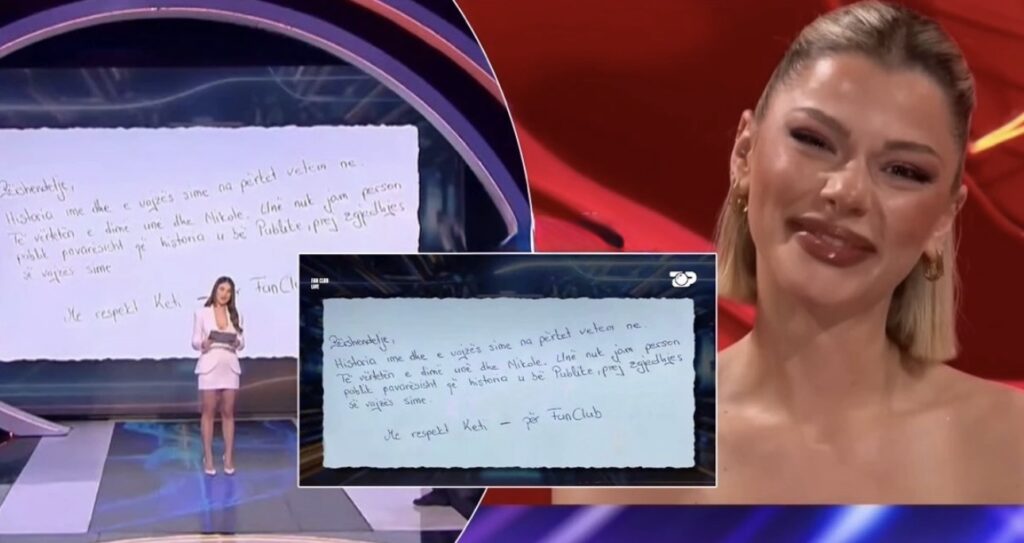 Përshendetje,
Historia ime dhe e vajzës sime na përket vetem ne.
Të vërtetën e dimë unë dhe Nikole. Unë nuk jam person
publik pavarësisht që historia u bë Publike, prej zgjedhjes
së vajzës sime
Me respekt Keti
FunClu
FAN CLUB
LIVE
Përshendetje,
Historia ime dhe e vajzës sime na përket vetem ne.
Të vërtetën e dimë unë dhe Nikole. Unë nuk jam person
publik pavarësisht që historia u bë Publike, prej zgjedhjes
së vajzës sime.
Me respekt Keti – për FunClub